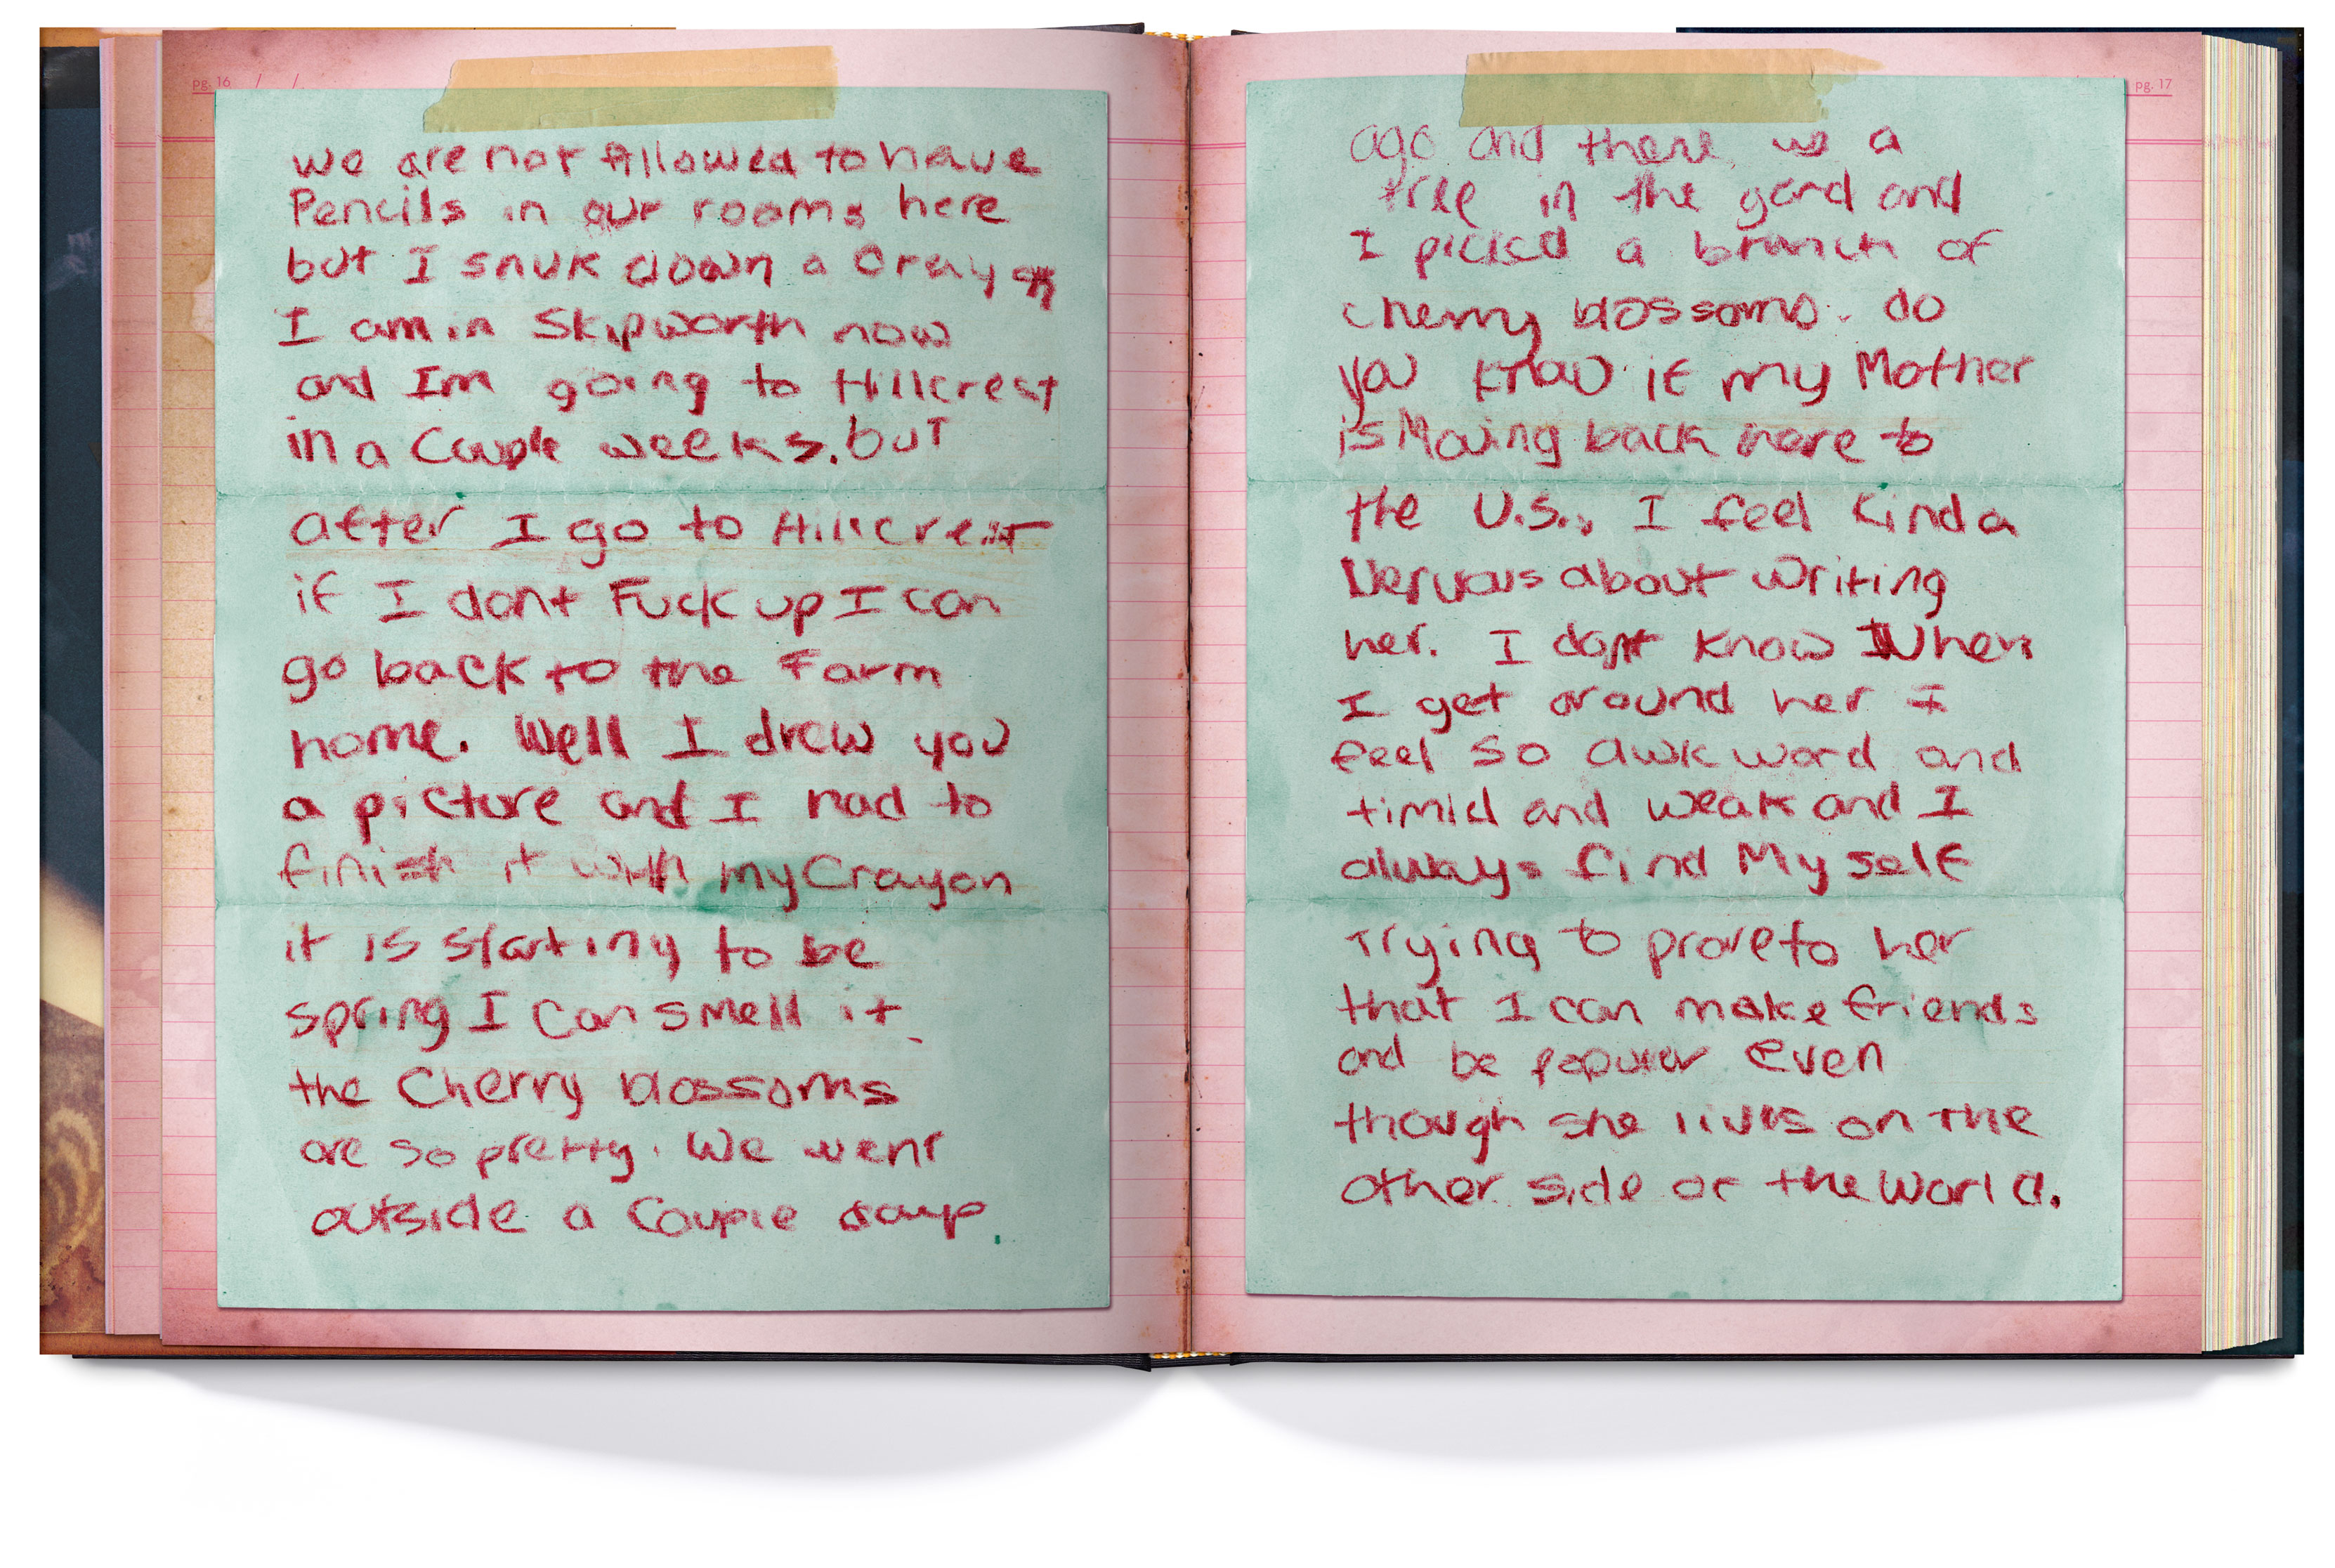 pg. 16 / /
we are not Allowed to have
Pencils in our rooms here
but I snuk down a Crayon
I am in Skipworth now
and Im going to Hillcrest
in a Couple weeks. but
after I go to Hillcrest
if I dont Fuck up I can
go back to the Farm
home. Well I drew you
a picture and I had to
finish it with my Crayon
it is starting to be
spring I Can smell it.
the Cherry blossoms
are so pretty. We went
outside a Couple
pg. 17
ago and there a
tree in the yard and
I picked a branch of
cherry blossoms. do
you know if my Mother
is Moving back here to
the U.S., I feel kinda
Nervous about writing
her. I dont know When
I get around her I
feel so awkword and
timid and weak and I
always find My self
Trying to prove to her
that I can make friends
and be populer even
though she lives on the
other side of the World.